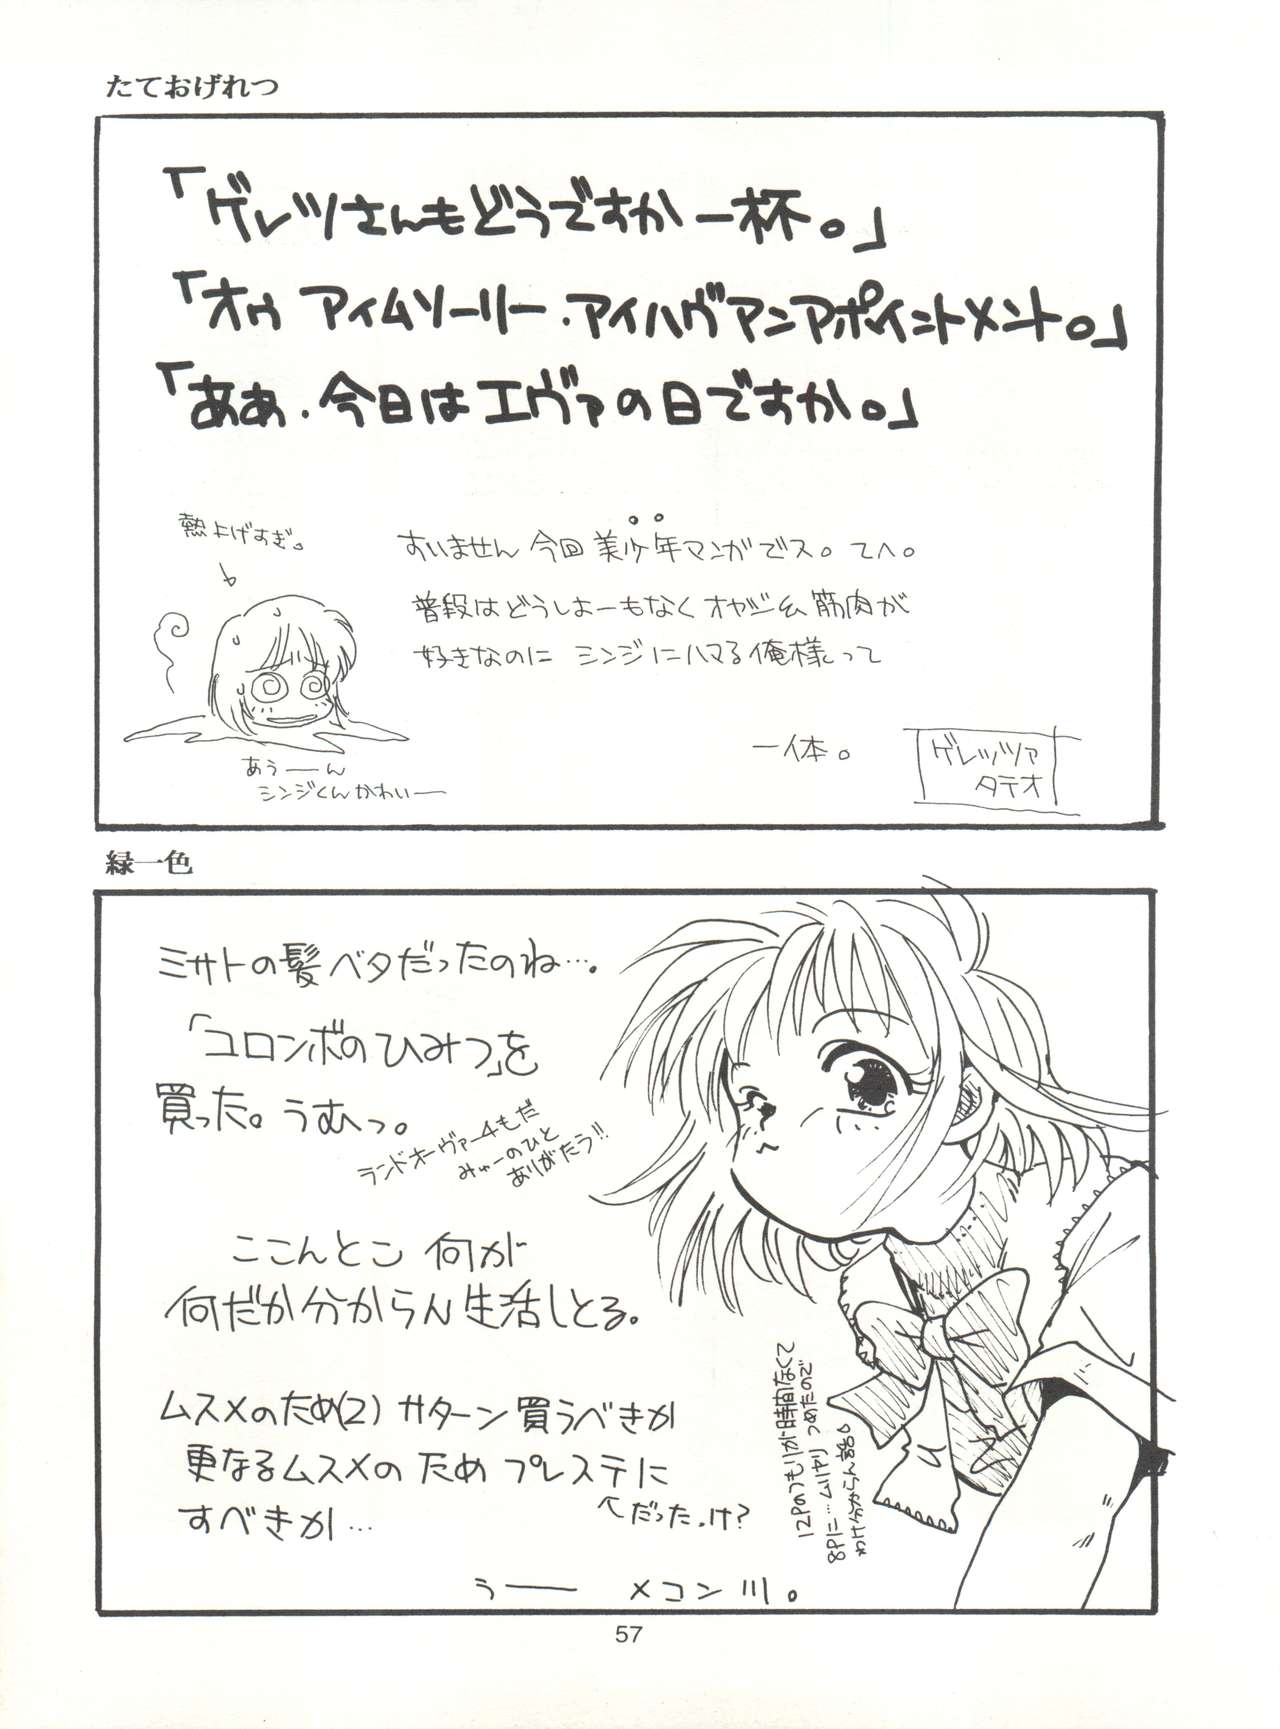 たておげれつ
「ゲレツさんもどうですか一杯。」
「オゥ アイムソーリー.アイハヴアンアポイントメント。」
「ああ.今日はエヴァの日ですか。」
熱上げすぎ。
すいません今回美少年マンガでス。てへ。
普段はどうしよーもなくオヤジ&筋肉が
好きなのに シンジにハマる俺様って
一体。
あうーん
シンジくんかわいー
ゲレッツァ
タテオ
緑一色
ミサトの髪ベタだったのね…。
「コロンボのひみつ」を
買った。うむっ。
ランドオーヴァー4もだ
みゅーのひと
ありがたう!!
ここんとこ 何が
何だか分からん生活しとる。
ムスメのため(2) サターン買うべきか
更なるムスメの ため プレステに
すべきか…
↖だったっけ?
12Pのつもりが時間なくて
8Pに…ムリヤリ つめたので
わけ分からん話。
うー メコン川。
57